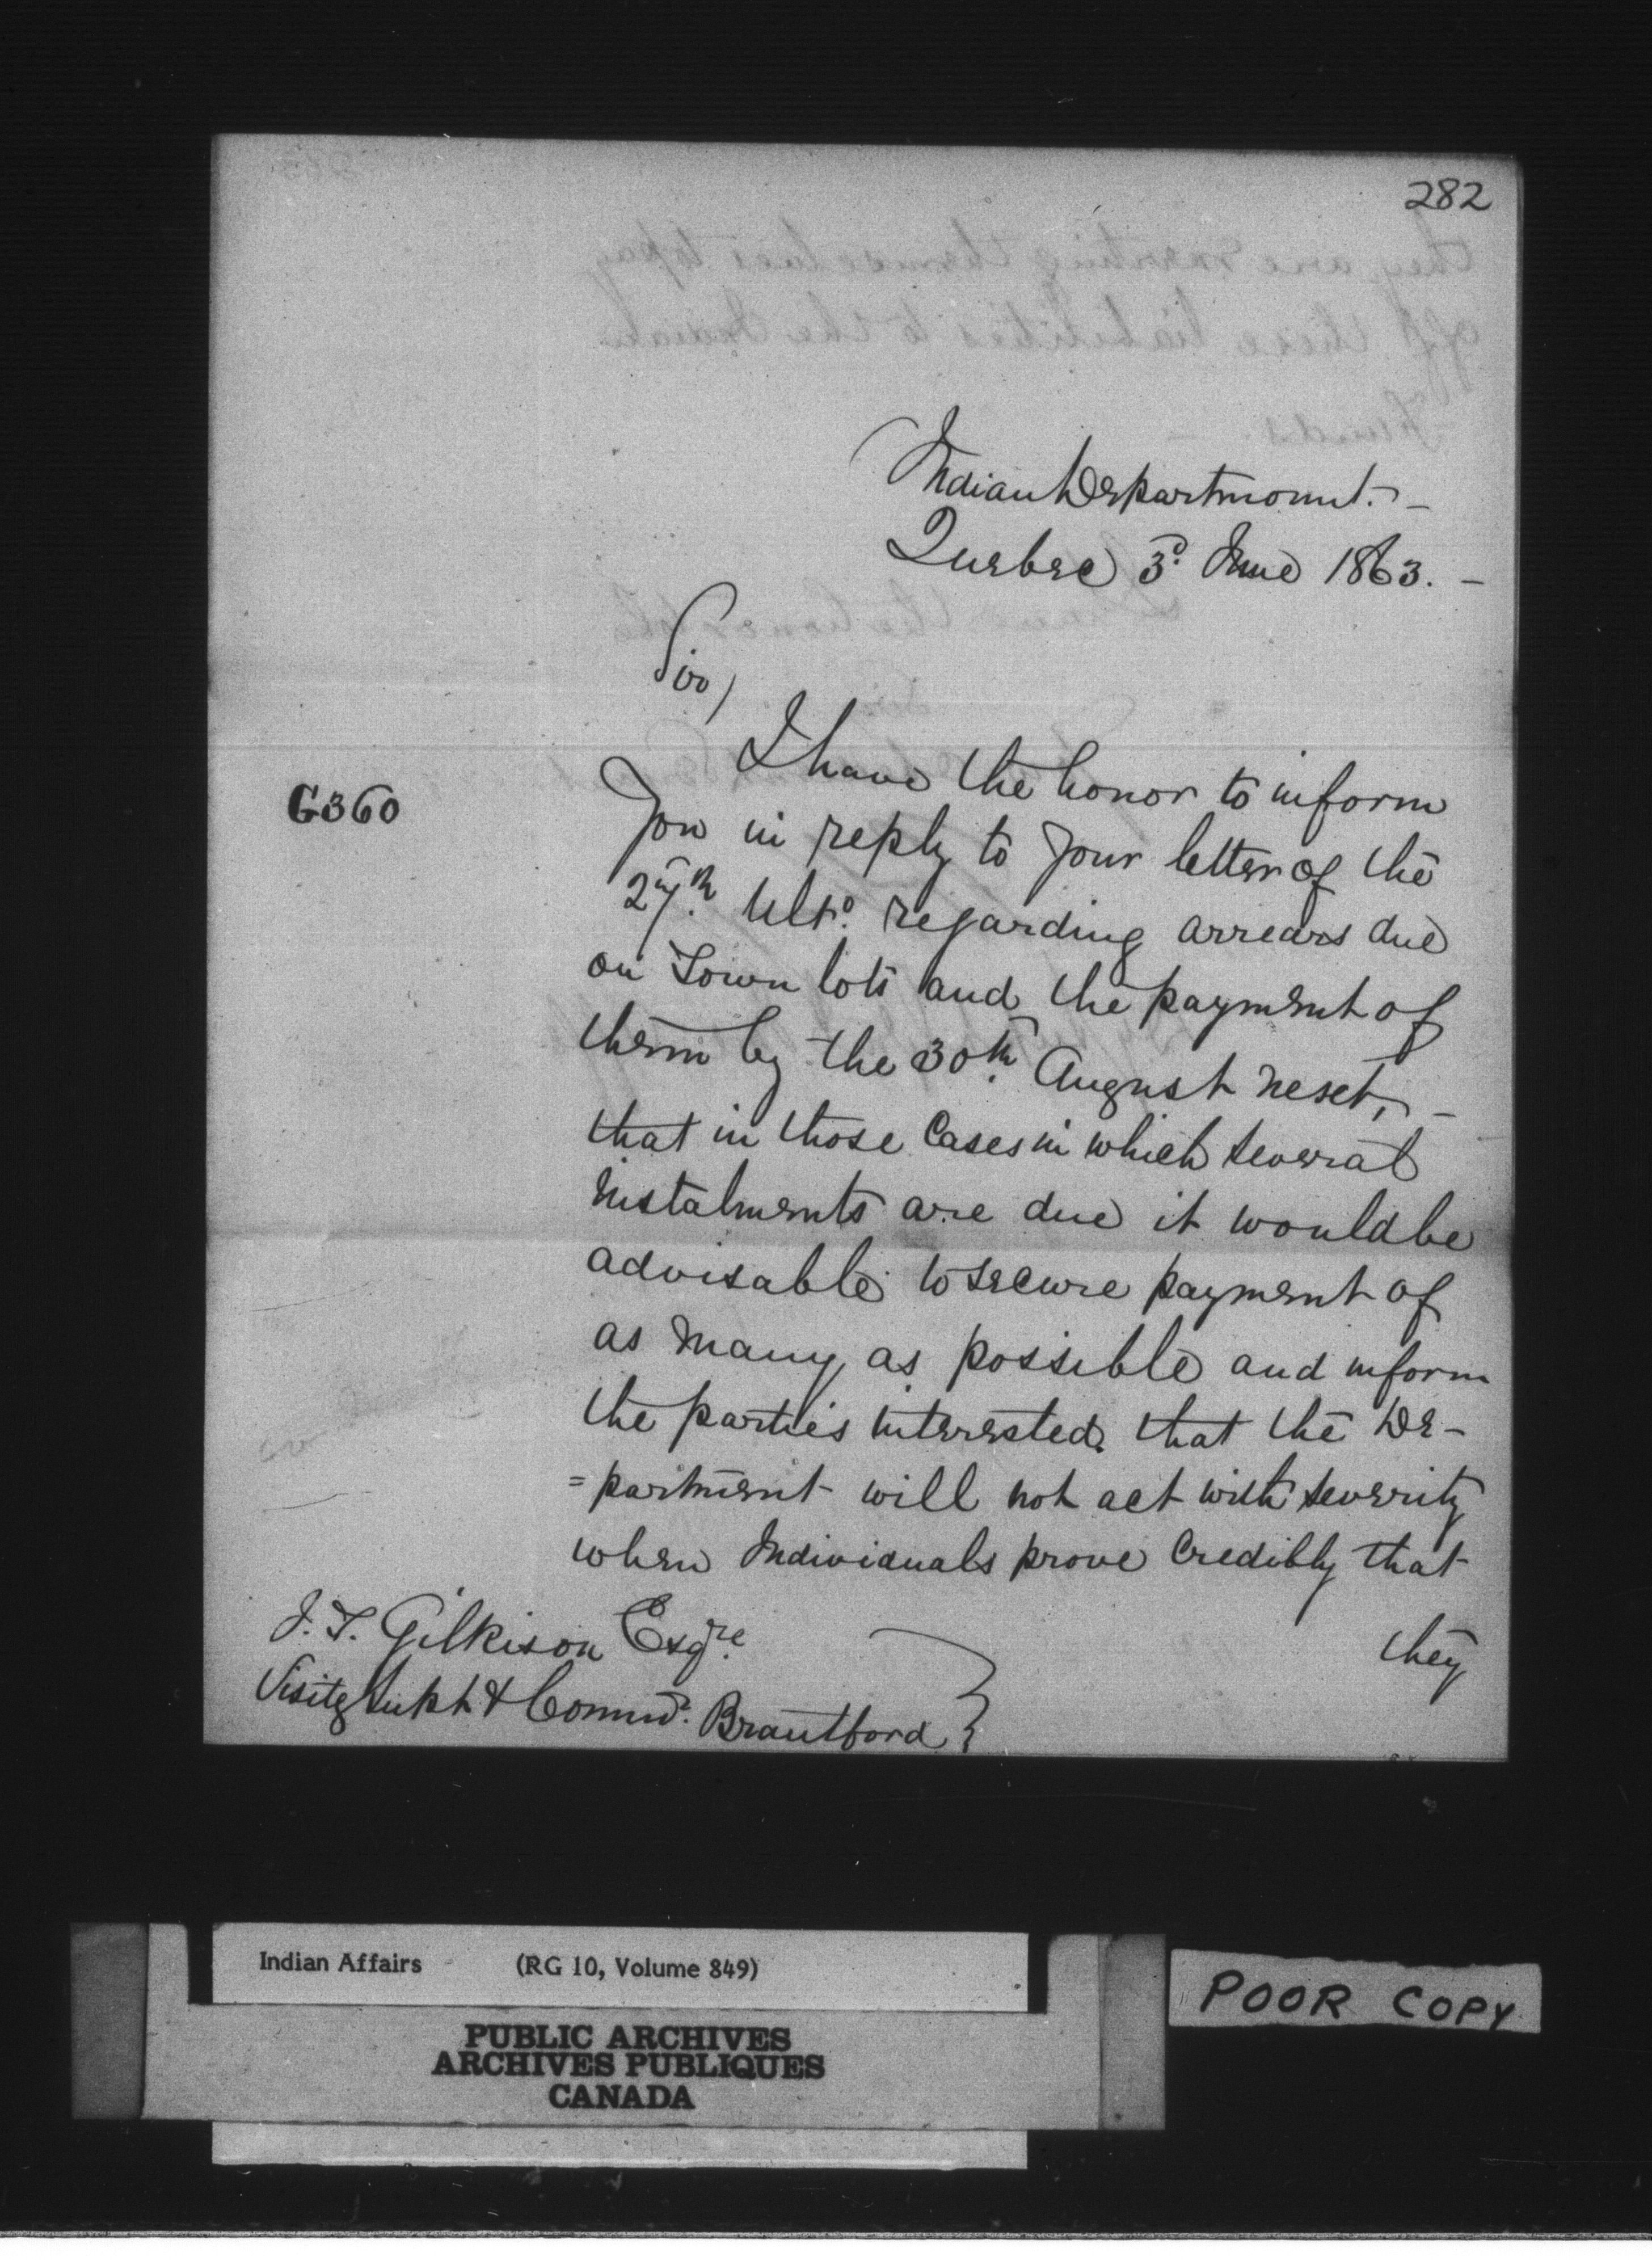 282
Indian Department. -
Quebec 3d. June 1863. -
Sir,
I have the honor to inform
G360
You in reply to your letter of the
27th. Ulto. regarding arrears due
on Town lots and the payment of
them by the 30th. August next, -
that in those Cases in which several
instalments are due it would be
advisable to secure payment of
as many as possible and inform
the parties interested that the De-
=partment will not act with severity
when Individuals prove Credibly that
they
J. T. Gilkison Esqre.
Visitg Supt & Commr. Brantford }
Indian Affairs - (RG 10, Volume 849)
PUBLIC ARCHIVES
ARCHIVES PUBLIQUES
CANADA
POOR COPY.